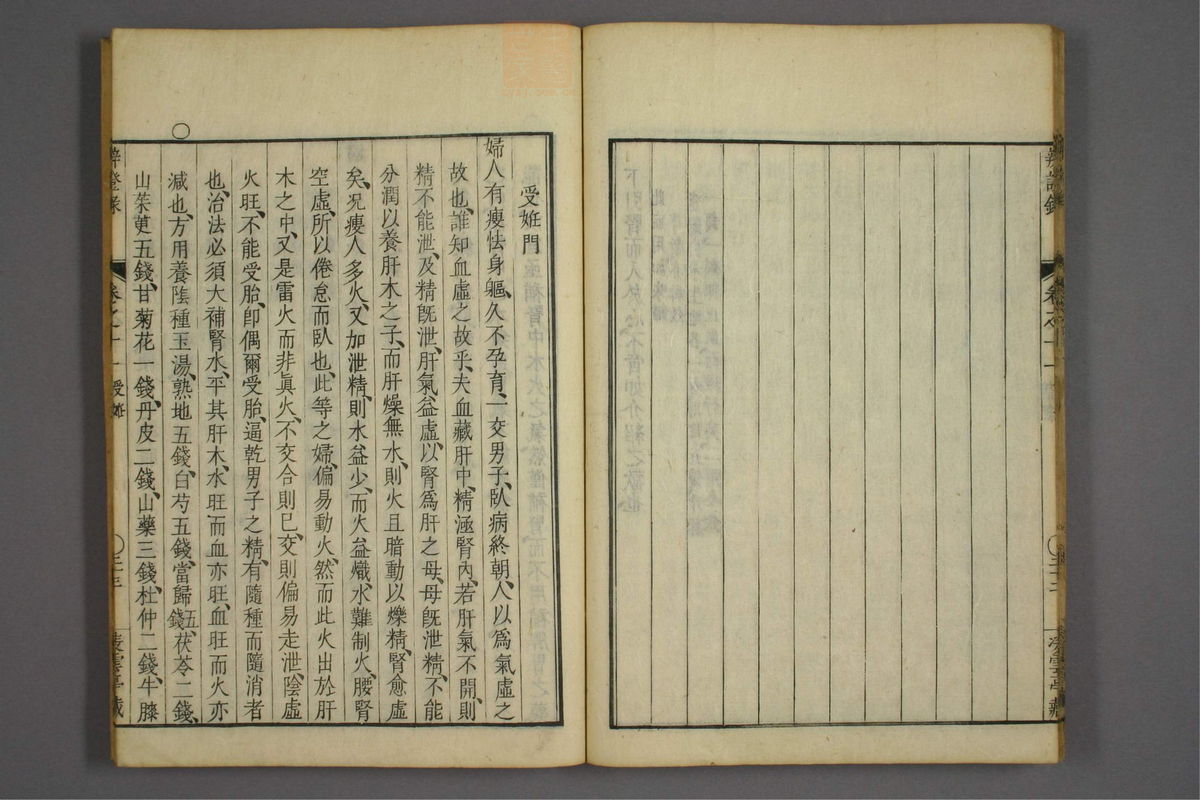 辨證錄
卷之十一
受姙門
婦人有瘦怯身軀、久不孕育、一交男子、臥病終朝、人以爲氣虛之
故也、誰知血虛之故乎、夫血藏肝中、精涵腎內、若肝氣不開、則
精不能泄、及精旣泄、肝氣益虛、以腎爲肝之母、母旣泄精、不能
分潤以養肝木之子、而肝燥無水、則火且暗動以爍精、腎愈虛
矣、况瘦人多火、又加泄精、則水益少、而火益熾、水難制火、腰腎
空虛、所以倦怠而臥也、此等之婦、偏易動火、然而此火出於肝
木之中、又是雷火而非眞火、不交合則已、交則偏易走泄、陰虛
火旺、不能受胎、卽偶爾受胎、逼乾男子之精、有隨種而隨消者
也、治法必須大補腎水、平其肝木、水旺而血亦旺、血旺而火亦
○
減也、方用養陰種玉湯、熟地五錢、白芍五錢、當歸五錢、茯苓二錢、
山茱萸五錢、甘菊花一錢、丹皮二錢、山藥三錢、杜仲二錢、牛膝
辨證錄
卷之十一 受姙